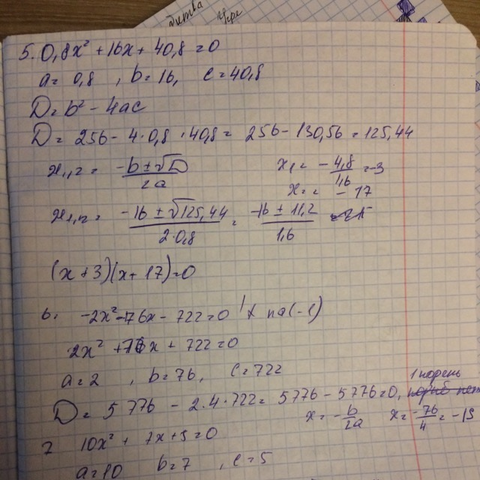 5. 0,8x² + 16x + 40,8 = 0
a = 0,8 , b = 16, c = 40,8
D = b² - 4ac
D = 256 - 4·0,8·40,8 = 256 - 130,56 = 125,44
x₁,₂ = (-b ± √D) / 2a
x₁ = - 4,8 / 1,6 = -3
x₂ = - 17
x₁,₂ = (-16 ± √125,44) / 2·0,8 = (-16 ± 11,2) / 1,6
(x + 3)(x + 17) = 0
6. -2x² - 76x - 722 = 0 | x на (-1)
2x² + 76x + 722 = 0
a = 2 , b = 76, c = 722
1 корень
D = 5 776 - 2·4·722 = 5776 - 5776 = 0,
x = - b / 2a x = -76 / 4 = -19
7 10x² + 7x + 5 = 0
a = 10 b = 7 , c = 5